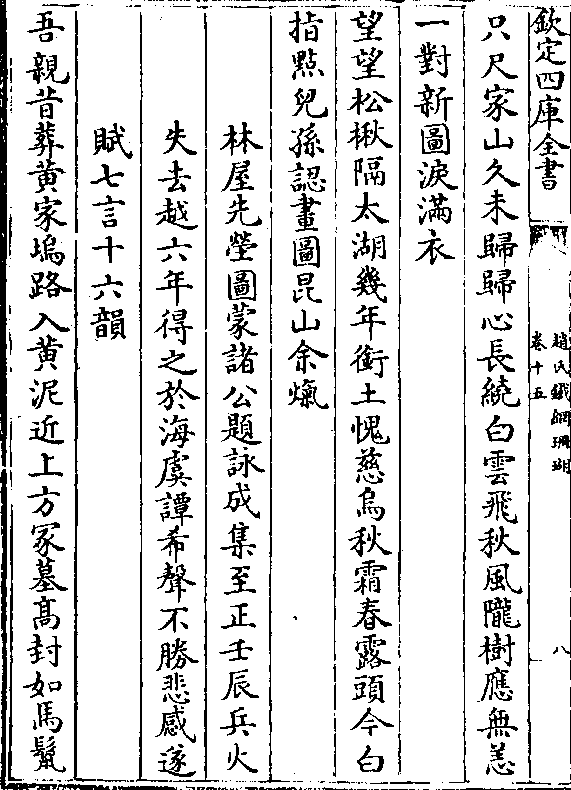 欽定四庫全書
趙氏鐵網珊瑚
卷十五
八
只尺家山久未歸歸心長繞白雲飛秋風隴樹應無恙
一對新圖淚滿衣
望望松楸隔太湖幾年銜土愧慈烏秋霜春露頭今白
指點兒孫認畫圖昆山余熂
林屋先塋圖蒙諸公題詠成集至正壬辰兵火
失去越六年得之於海虞譚希聲不勝悲感遂
賦七言十六韻
吾親昔葬黄家塢路入黄泥近上方冢墓髙封如馬鬛